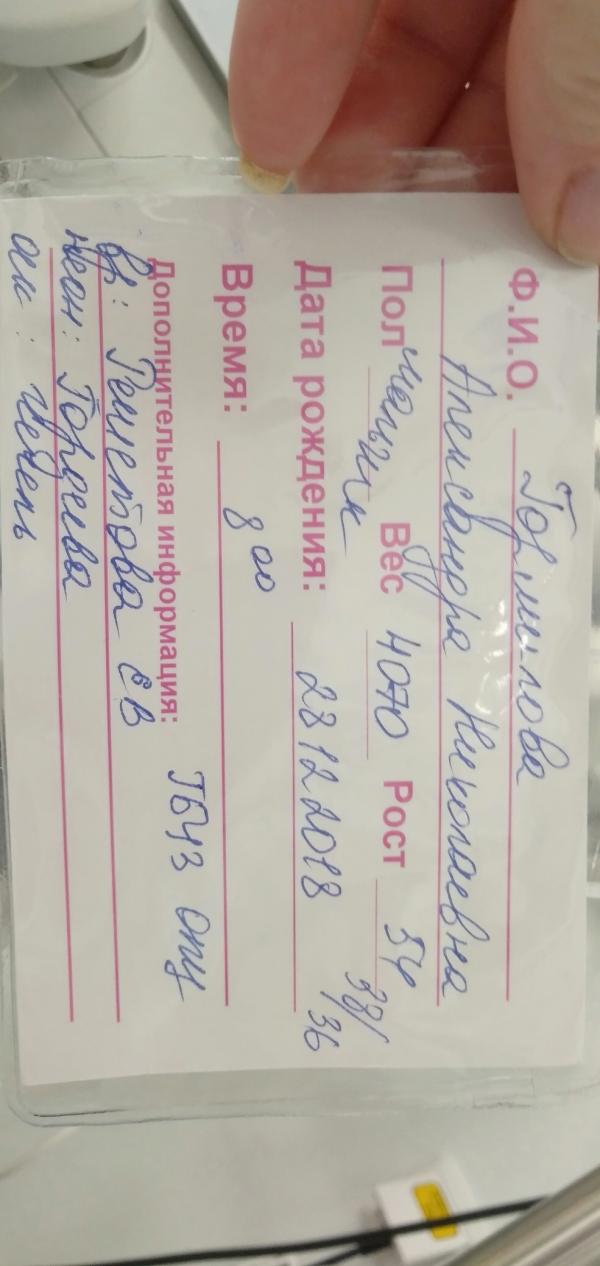 Ф.И.О. Гормилова
Александра Николаевна
Пол мальчик Вес 4070 Рост 54
38/36
Дата рождения: 28 12 2018
Время: 8 00
Дополнительная информация: ГБУЗ ОПЦ
вр: Решетова Е В
неон: Гордеева
ак: Чечень